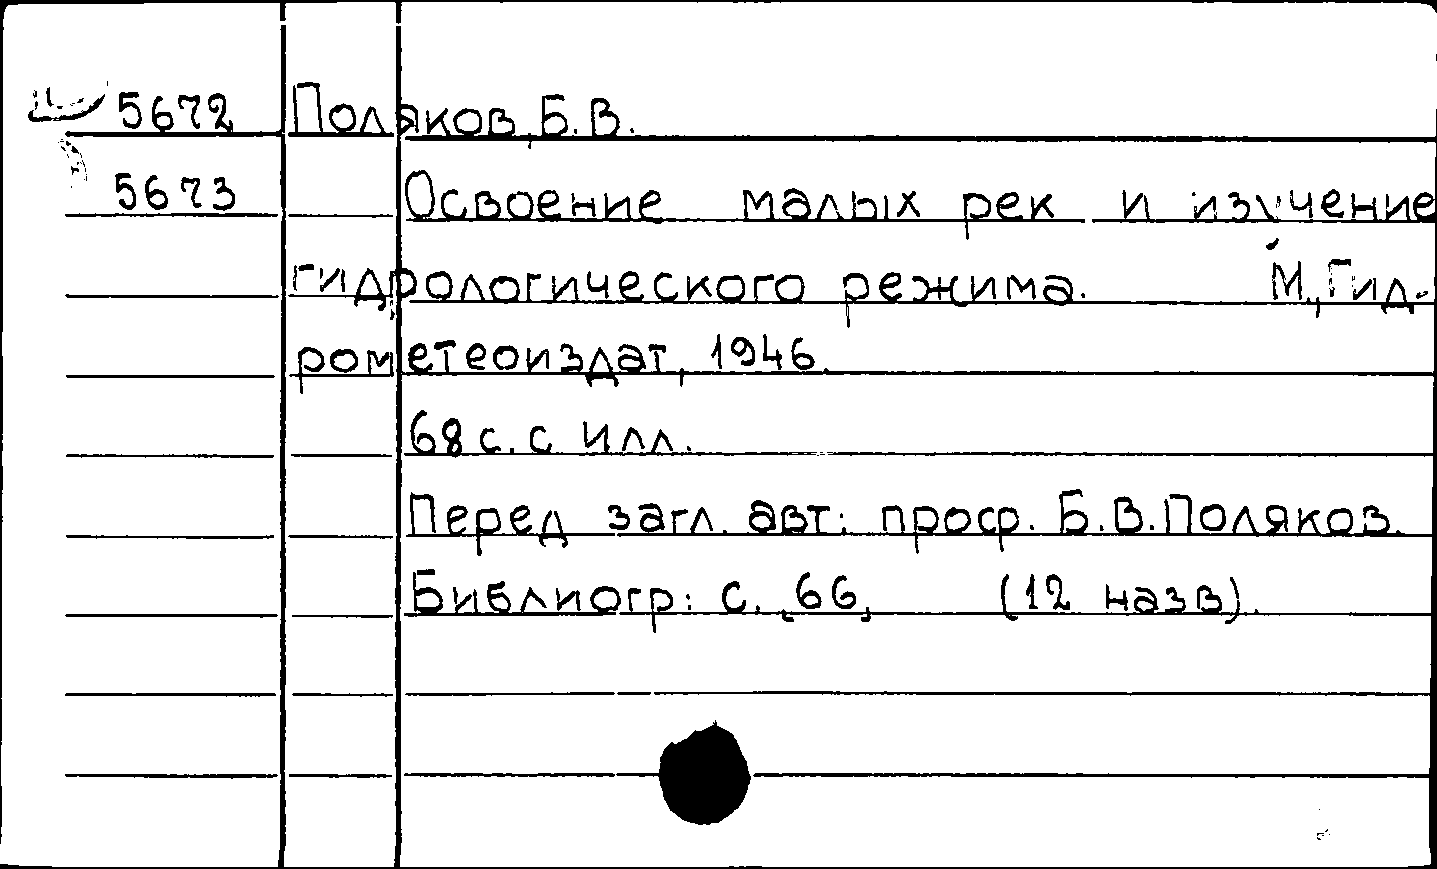 5672 Поляков, Б.В.
5673 Освоение малых рек и изучение
гидрологического режима. М., Гид-
рометеоиздат, 1946.
68 с. с илл.
Перед загл. авт: проф. Б.В.Поляков.
Библиогр: с. „66„ (12 назв).